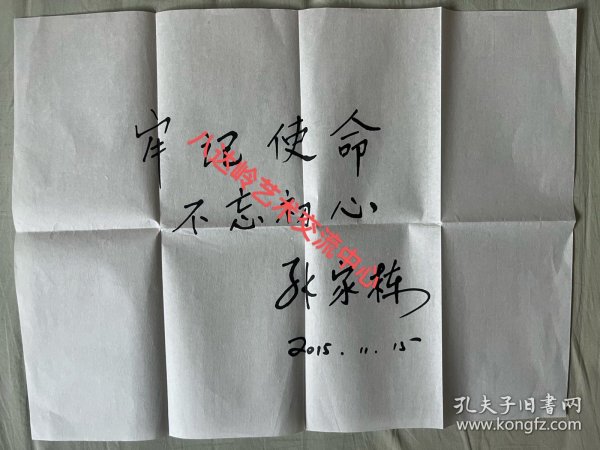 牢记使命
不忘初心
孙家栋
2015.11.15
八达岭艺术交流中心
孔夫子旧书网
www.kongfz.com